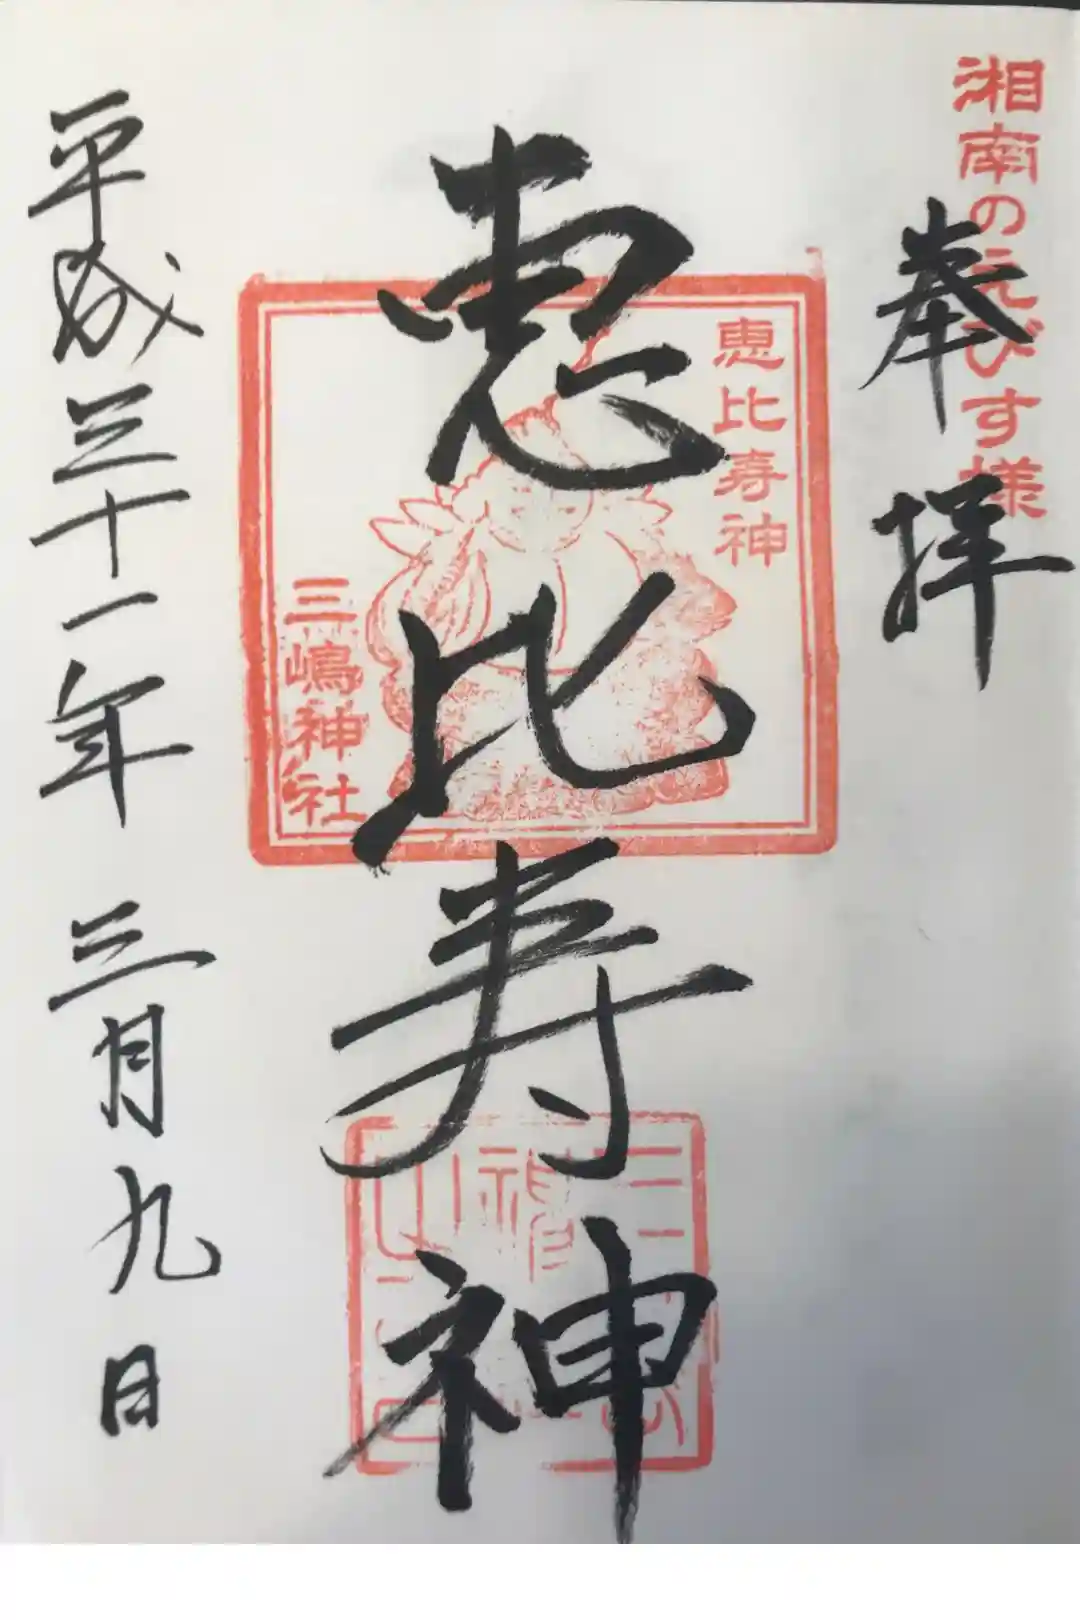 湘南のえびす様
奉拝
恵比寿神
恵比寿神
三嶋神社
平成三十一年 三月九日